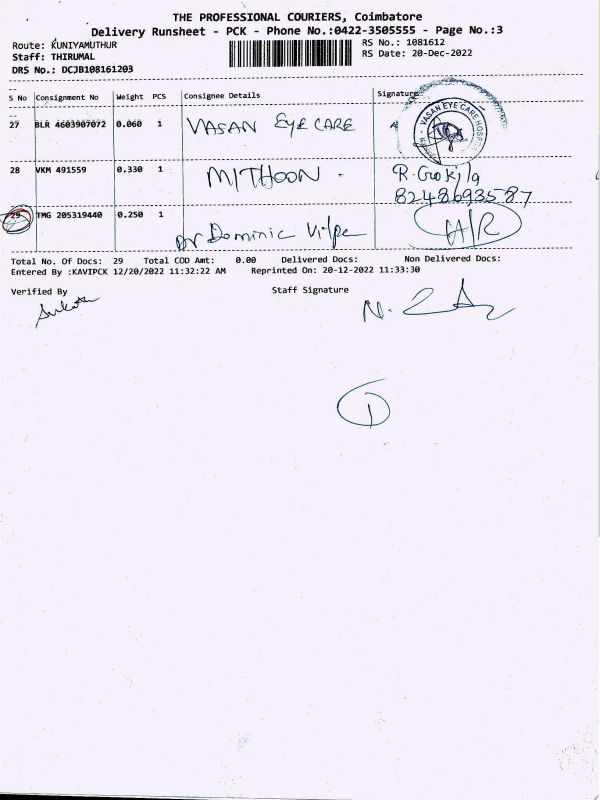 THE PROFESSIONAL COURIERS, Coimbatore
Delivery Runsheet - PCK - Phone No.:0422-3505555 - Page No.:3
Route: KUNIYAMUTHUR
RS No.: 1081612
Staff: THIRUMAL
RS Date: 20-Dec-2022
DRS No.: DCJB108161203
S No Consignment No Weight PCS Consignee Details Signature
27 BLR 4603907072 0.060 1 VASAN EYE CARE
VASAN EYE CARE HOSPITAL
28 VKM 491559 0.330 1 MITHOON . R. Gokila
8248693587
29 TMG 205319440 0.250 1 Dr Dominic
Total No. Of Docs: 29 Total COD Amt: 0.00 Delivered Docs: Non Delivered Docs:
Entered By :KAVIPCK 12/20/2022 11:32:22 AM Reprinted On: 20-12-2022 11:33:30
Verified By Staff Signature
1